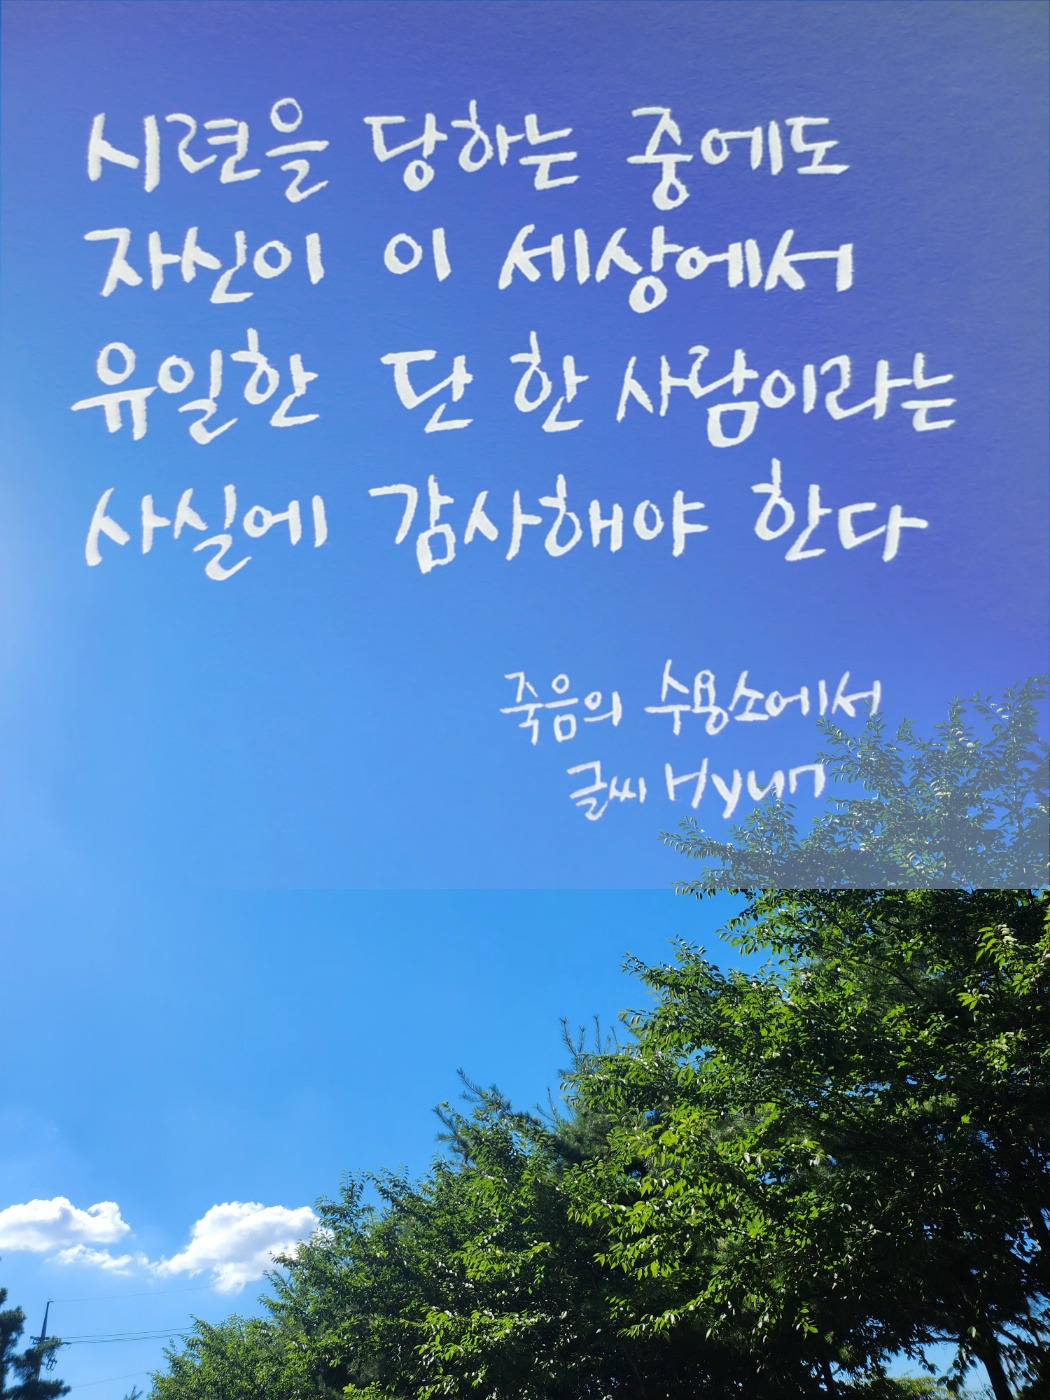 시련을 당하는 중에도
자신이 이 세상에서
유일한 단 한 사람이라는
사실에 감사해야 한다
죽음의 수용소에서
글씨 Hyun